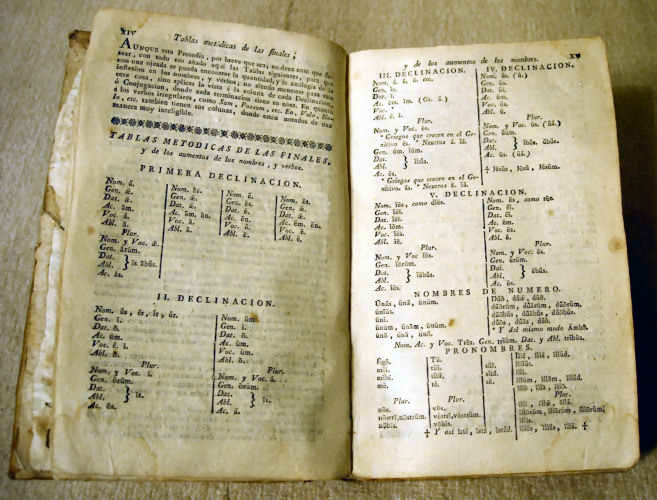 XIV
Tablas metodicas de las finales;
AUNQUE esta Prosodia, por breve que sea, no dexa nada que de-
sear, con todo eso añado aquí las Tablas siguientes, para que
con una ojeada se pueda encontrar la cantidad, y la analogía de la
inflexion en los nombres, y verbos; no siendo menester para
otra cosa, sino aplicar la vista á la materia de cada Declinacion,
ó Conjugacion, donde cada terminacion tiene su nota. En quanto
á los verbos irregulares, como Sum, Possum, etc. Eo, Volo, Ma-
lo, etc. tambien tienen sus colunas, donde están notados de una
manera muy inteligible.
TABLAS METODICAS DE LAS FINALES,
y de los aumentos de los nombres, y verbos.
PRIMERA DECLINACION.
Nom. ă.
Gen. æ.
Dat. æ.
Ac. ăm.
Voc. ă.
Abl. ā.
Plur.
Nom. y Voc. æ.
Gen. ārŭm.
Dat.
Abl. } īs. ābŭs.
Ac. ās.
Nom. ās.
Gen. æ.
Dat. æ.
Ac. ăm. ān.
Voc. ā.
Abl. ā.
Nom. ē.
Gen. ēs.
Dat. ē.
Ac. ēn.
Voc. ē.
Abl. ē.
Nom. ēs.
Gen. æ.
Dat. æ.
Ac. ēn.
Voc. ē.
Abl. ē.
II. DECLINACION.
Nom. ŭs, ĕr, ĭr, ŭr.
Gen. ī.
Dat. ō.
Ac. ŭm.
Voc. ĕ. ī.
Abl. ō.
Plur.
Nom. y Voc. ī.
Gen. ōrŭm.
Dat.
Abl. } īs.
Ac. ōs.
Nom. ŭm.
Gen. ī.
Dat. ō.
Ac. ŭm.
Voc. ŭm.
Abl. ō.
Plur.
Nom. y Voc. ă.
Gen. ōrŭm.
Dat.
Abl. } īs.
Ac. ă.
y de los aumentos de los nombres.
XV
III. DECLINACION.
Gen. ĭs.
Dat. ī.
Voc.
Abl.
Plur.
Nom. y Voc. ēs.
* Griegos que crecen en el Ge-
nitivo ĕs. * Neutros ă. ĭă.
Gen. ŭm, ĭŭm.
Dat.
Abl. } ĭbŭs.
Ac. ēs.
* Griegos que crecen en el Ge-
nitivo. ăs. * Neutros ă. ĭă.
IV. DECLINACION.
Nom. ŭs. (ū.)
Gen. ūs.
Dat. ŭī.
Ac. ŭm.
Voc. ŭs.
Abl. ū.
Plur.
Nom. y Voc. ūs. (ŭă.)
Gen. ŭŭm.
Dat.
Abl. } ĭbŭs. ŭbŭs.
Ac. ūs. (ŭă.)
V. DECLINACION.
Nom. ĭēs, como dĭēs.
Gen. ĭēī.
Dat. ĭēī.
Ac. ĭĕm.
Voc. ĭēs.
Abl. ĭē.
Plur.
Nom. y Voc. ĭēs.
Gen. ĭērŭm.
Dat.
Abl. } ĭēbŭs.
Ac. ĭēs.
Nom. ēs, como rēs.
Gen. ĕī.
Dat. ĕī.
Ac. ĕm.
Voc. ēs.
Abl. ē.
Plur.
Nom. y Voc. ēs.
Gen. ērŭm.
Dat.
Abl. } ēbŭs.
Ac. ēs.
NOMBRES DE NUMERO.
Ūnŭs, ūnă, ūnŭm.
ūnīŭs.
ūnī.
ūnŭm, ūnăm, ūnŭm.
ūnō, ūnā, ūnō.
Dŭŏ, dŭæ, dŭŏ.
dŭōrŭm, dŭārŭm, dŭōrŭm.
dŭōbŭs, dŭābŭs, dŭōbŭs.
dŭōs, dŭās, dŭŏ.
* Y del mismo modo Ambŏ.
Nom. Ac. y Voc. Trēs. Gen. trĭŭm. Dat. y Abl. trĭbŭs.
PRONOMBRES.
Ĕgŏ.
mĕī.
mĭhĭ.
mē.
Plur.
nōs.
nōstrī, nōstrŭm.
nōbīs.
Tū.
tŭī.
tĭbĭ.
tē.
Plur.
vōs.
vēstrī, vēstrŭm.
vōbīs.
sŭī.
sĭbĭ.
sē.
Illĕ, illă, illŭd.
illīŭs.
illī.
illŭm, illăm, illŭd.
illō, illā, illō.
Plur.
illī, illæ, illă.
illōrŭm, illārŭm, illōrŭm.
illīs.
illōs, illās, illă. ☩
☩ Y así istĕ, istă, istŭd.